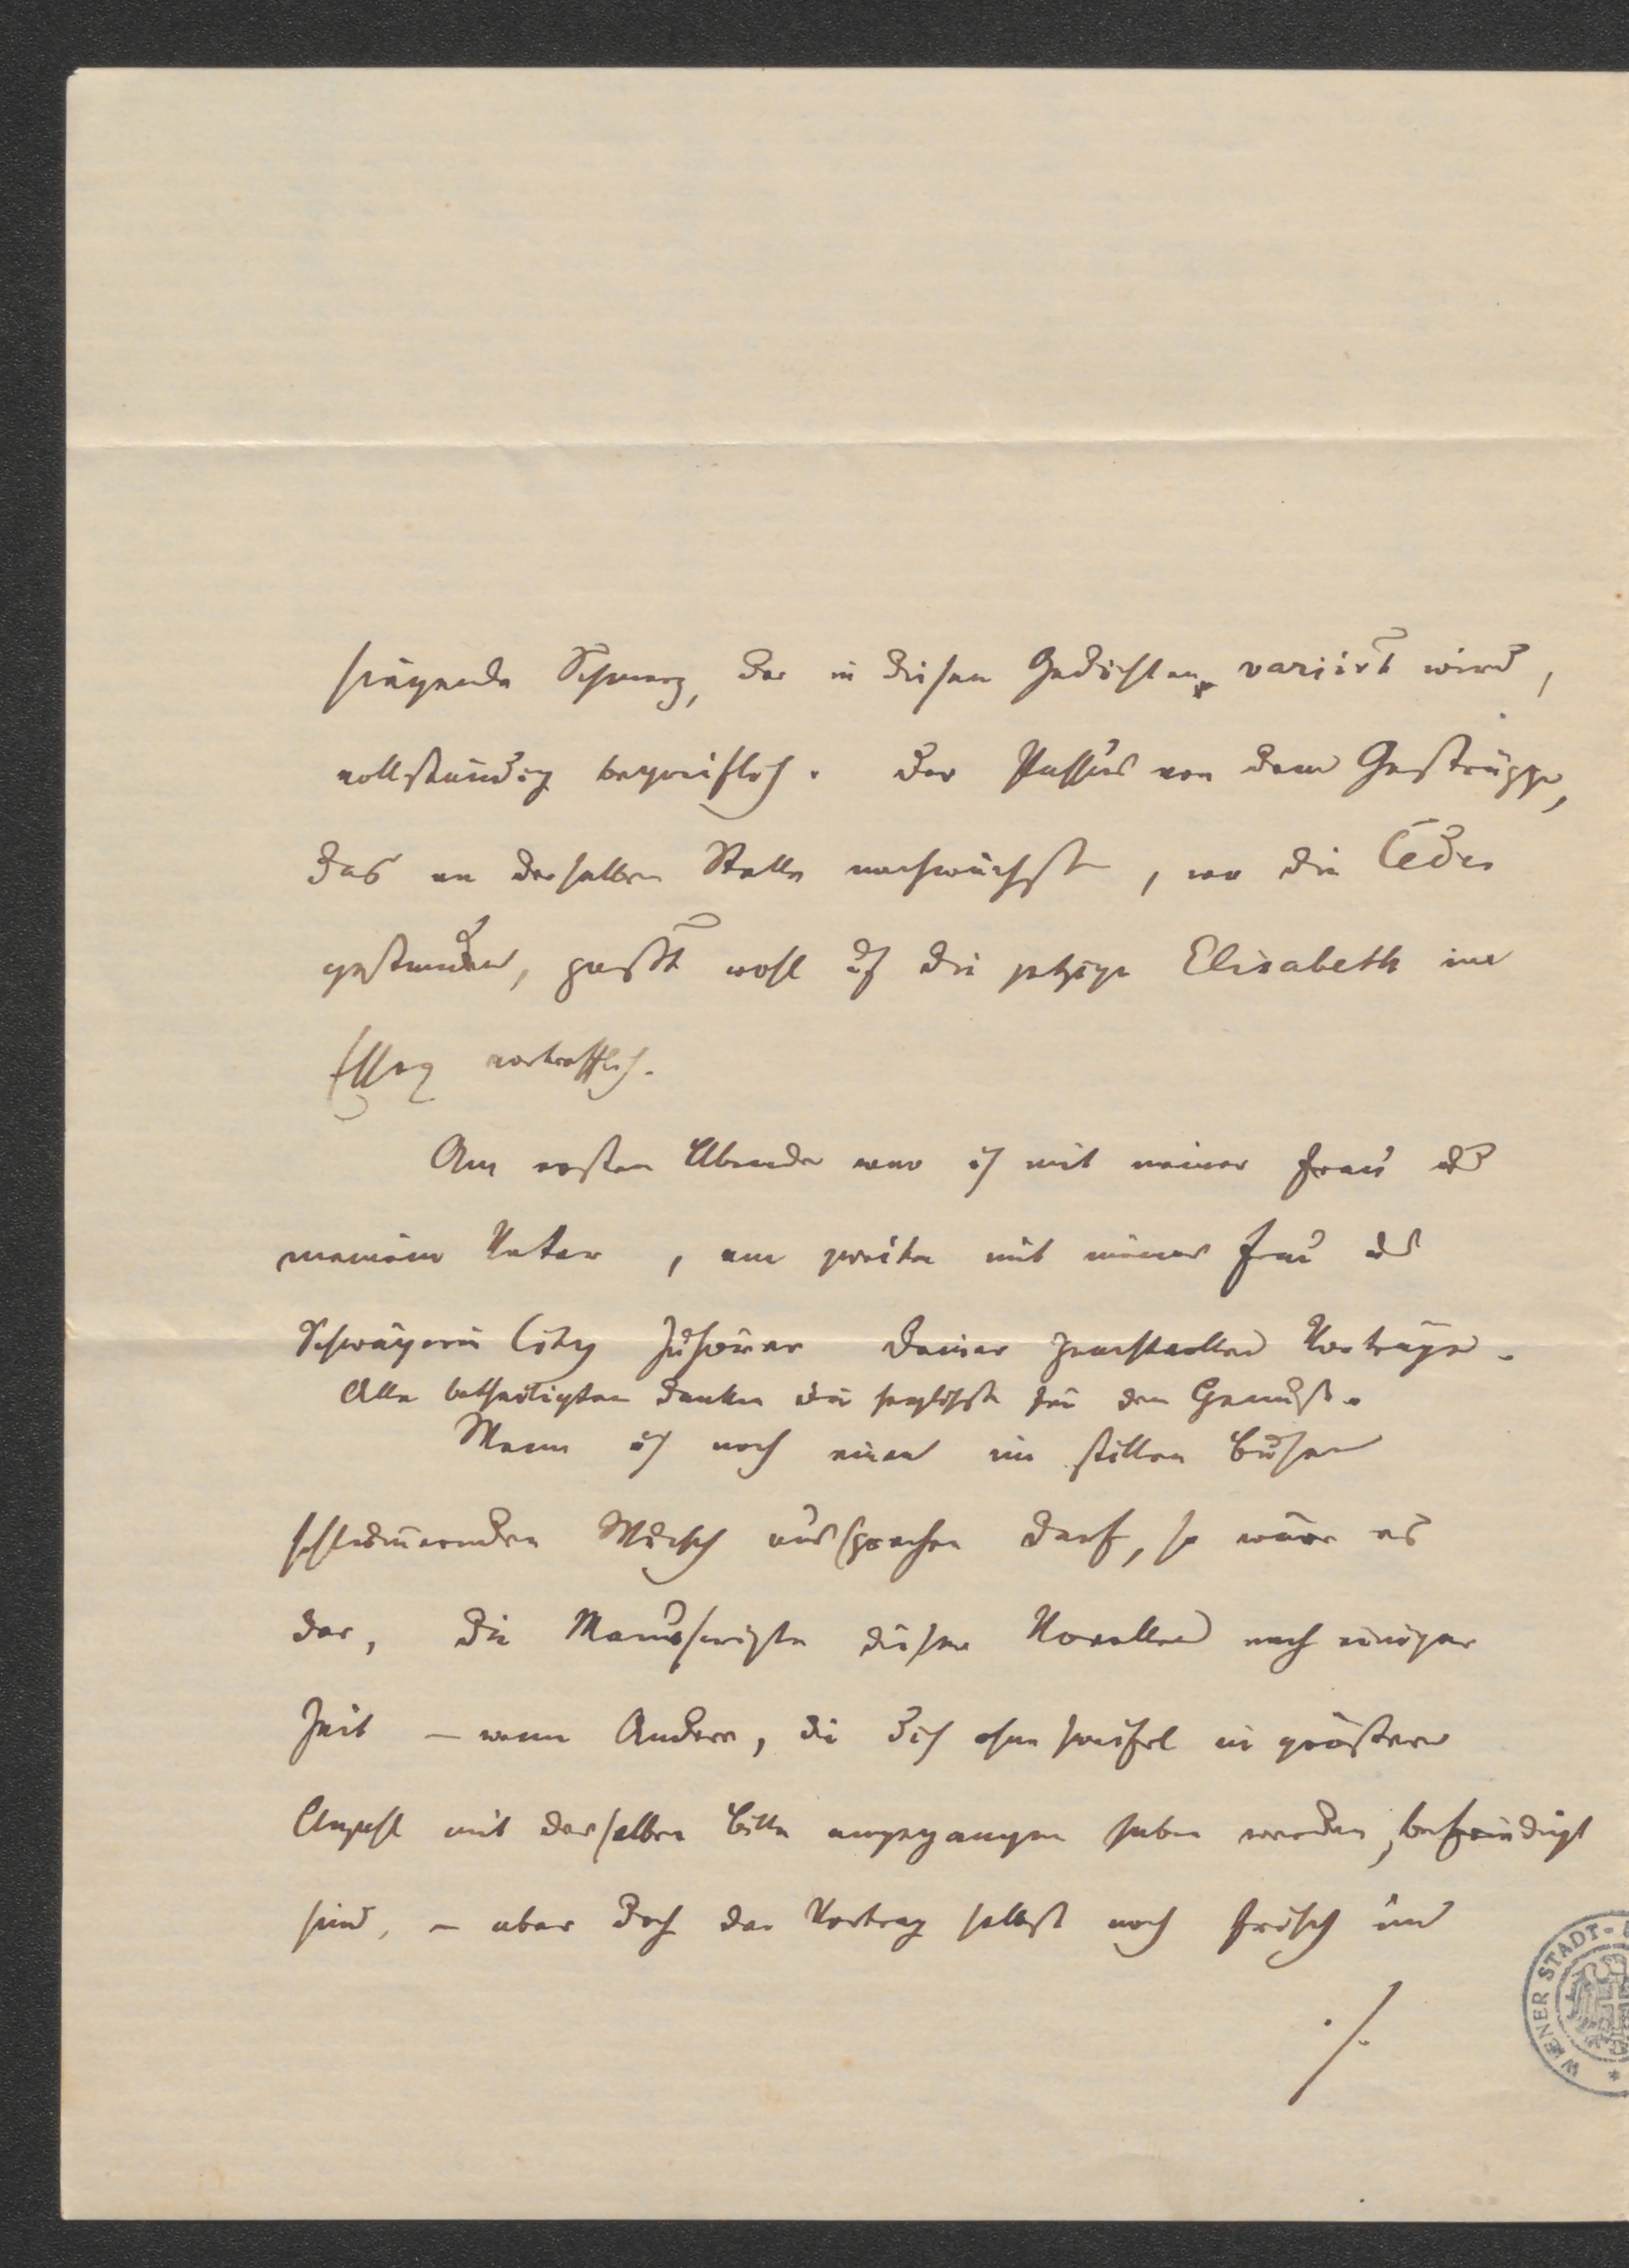 singende Schmerz, der in diesen Gedichten variirt wird,
vollständig begreiflich. Der Passus von dem Gestrüppe,
das an derselben Stelle nachwächst, wo die Ceder
gestanden, passt wohl auf die jetzige Elisabeth im
vortrefflich.
Am ersten Abende war ich mit meiner Frau und
meinem Vater, am zweiten mit meiner Frau und
Schwägerin Zuhörer Deiner Vorträge.
Alle betheiligten danken Dir herzlichst für den Genuß.
Wenn ich noch einen im stillen Busen
schlummernden Wunsch aussprechen darf, so wäre es
der, die Manuscripte dieser Novellen nach einiger
Zeit – wenn Andere, die Dich ohne Zweifel in größerer
Anzahl mit derselben Bitte angegangen haben werden, befriedigt
sind, – aber doch der Vortrag selbst noch frisch und
./.
WIENER STADT-